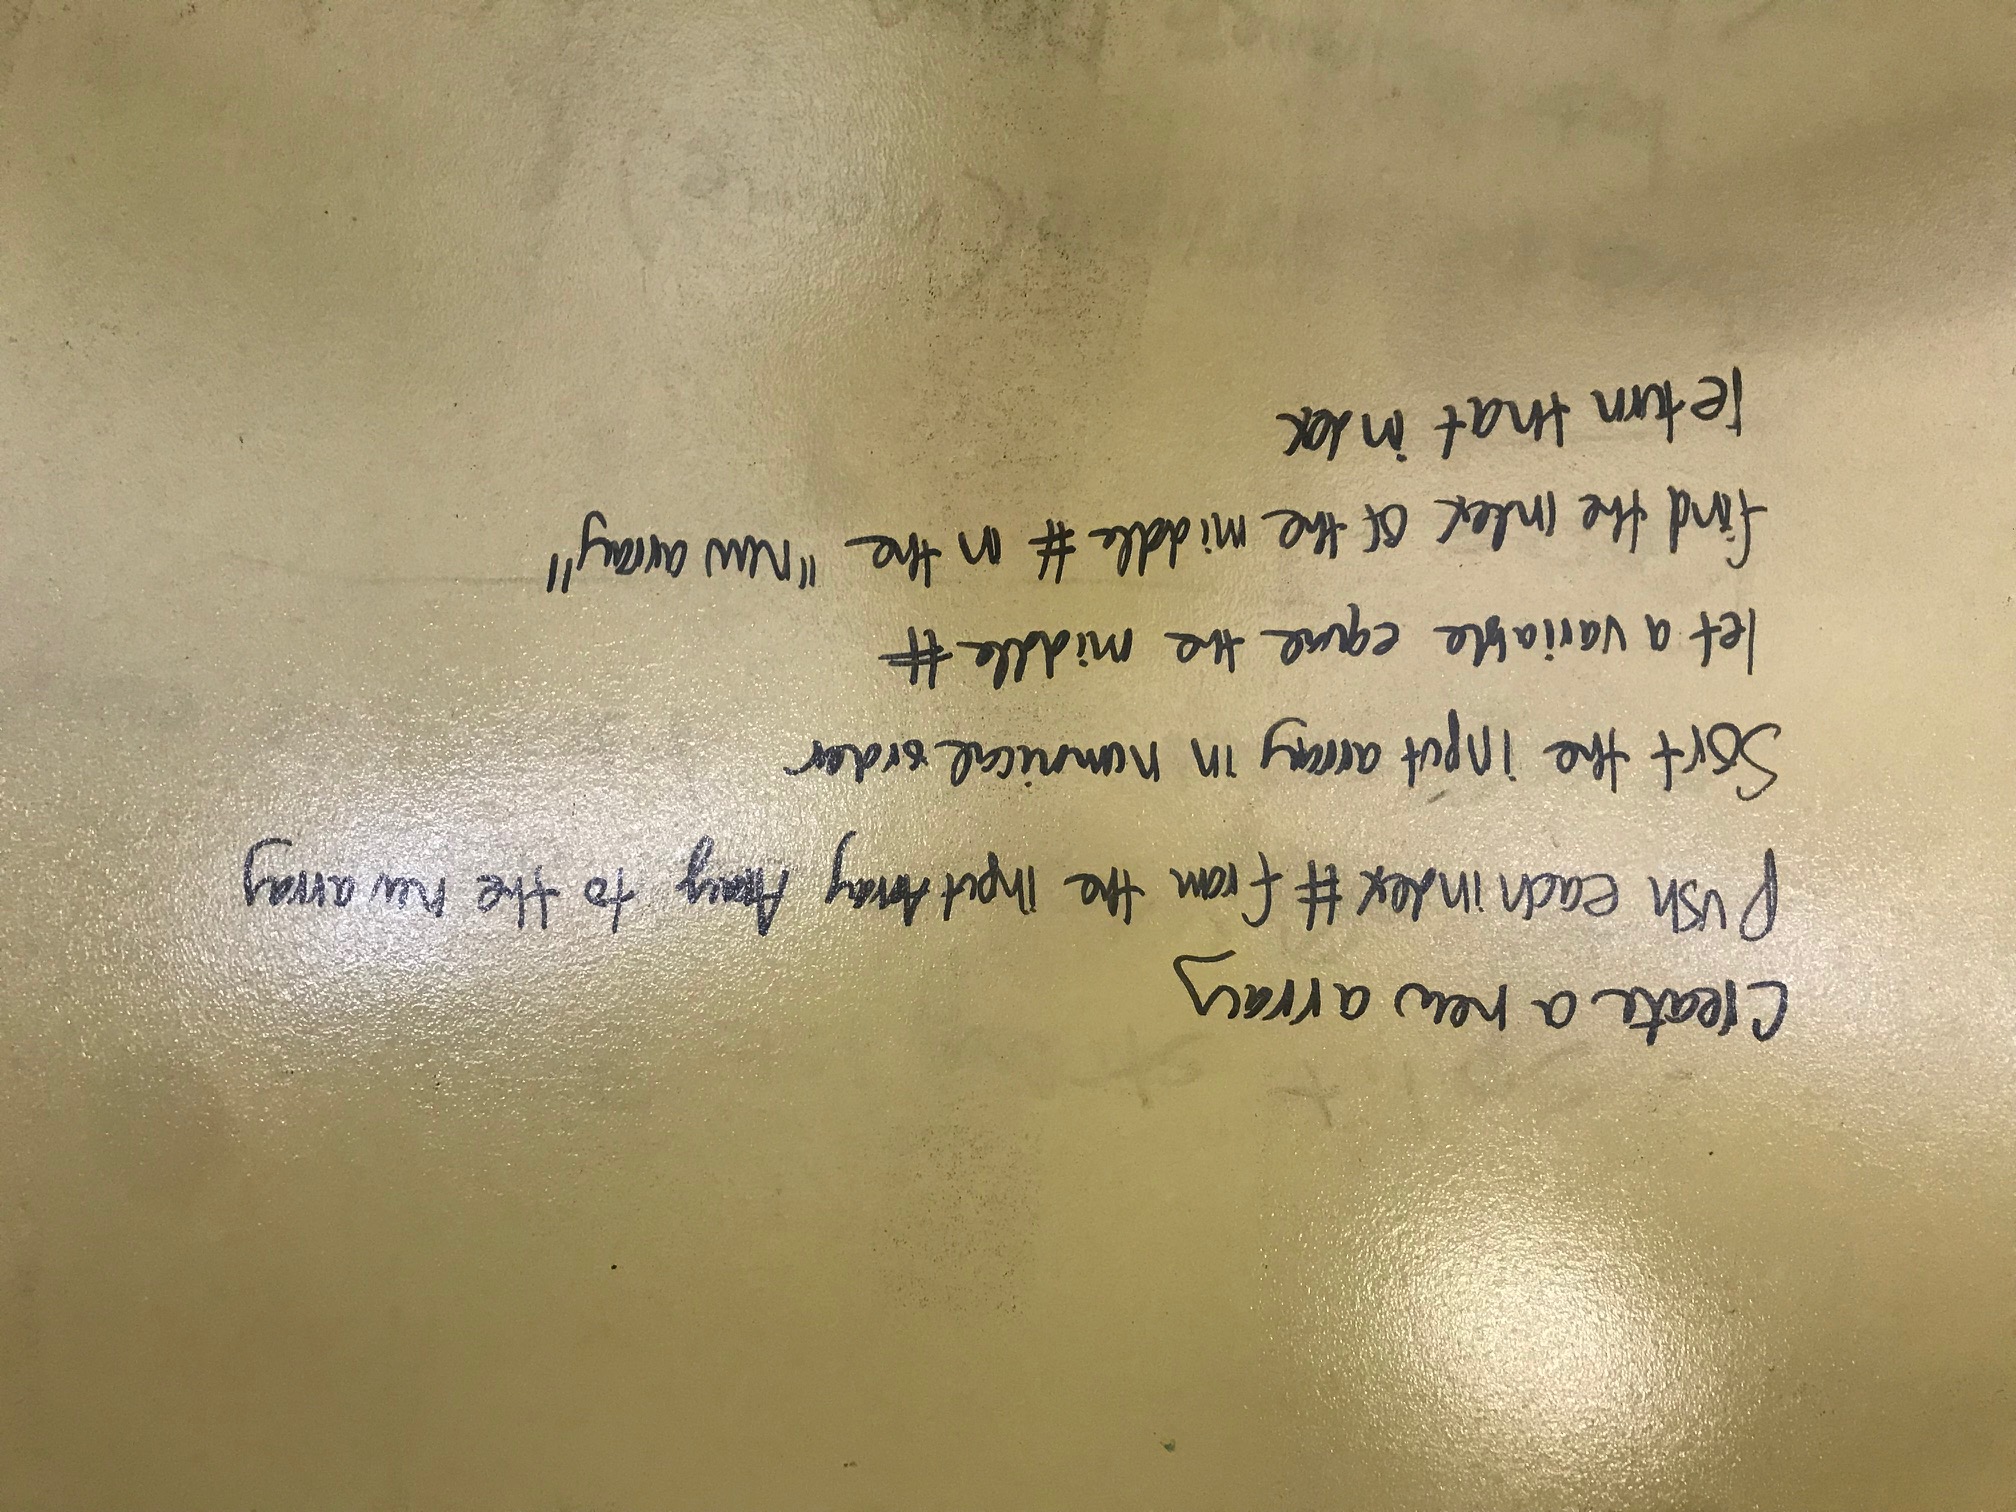 Create a new array
push each index # from the input Array Array to the new array
Sort the input array in numrical order
let a variable equal the middle #
find the index of the middle # in the "new array"
return that index